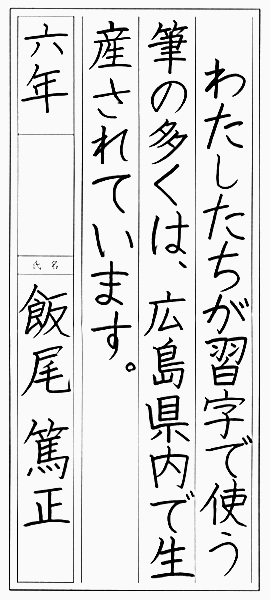 わたしたちが習字で使う
筆の多くは、広島県内で生
産されています。
六年
氏名
飯尾 篤正